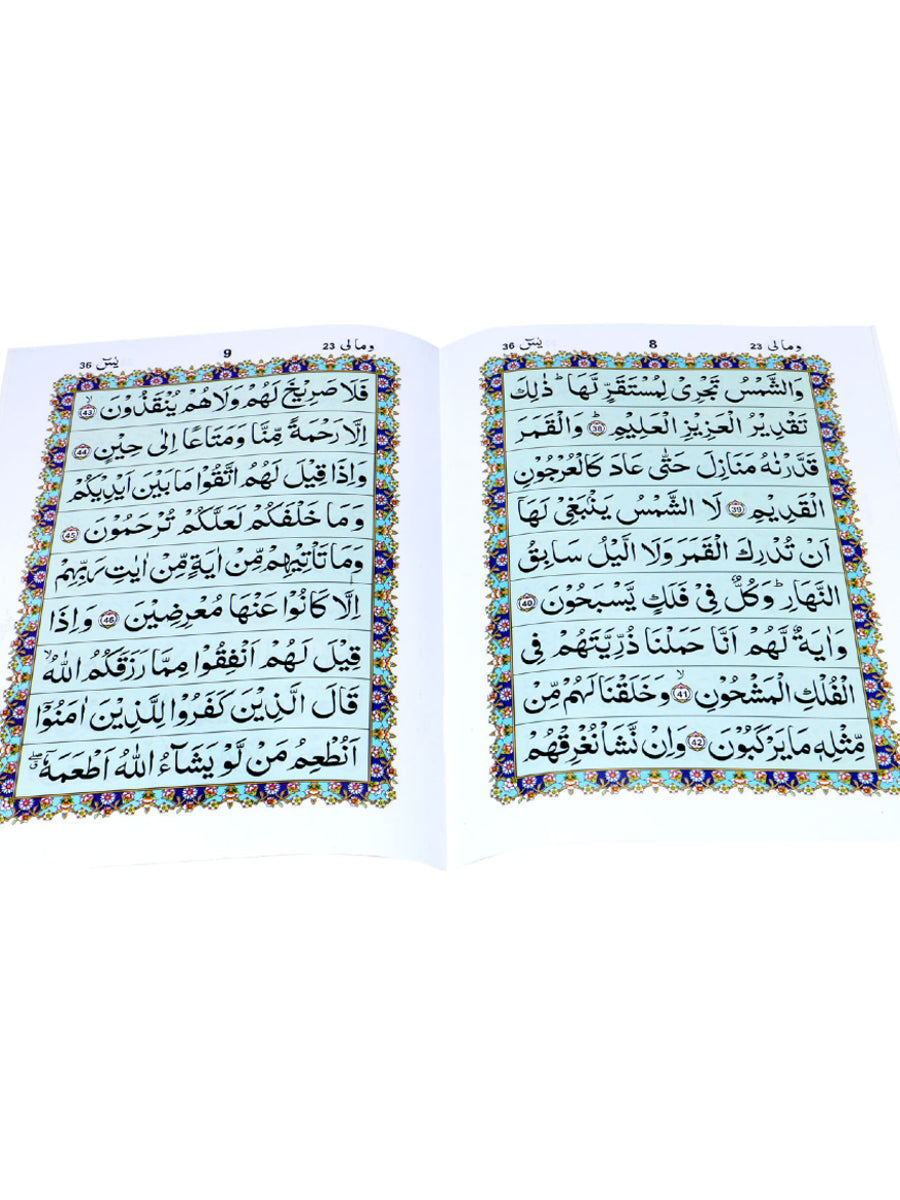 ومالی 23
8
یٰسٓ 36
وَالشَّمْسُ تَجْرِیْ لِمُسْتَقَرٍّ لَّهَا ؕ ذٰلِكَ
تَقْدِیْرُ الْعَزِیْزِ الْعَلِیْمِ ؕ 38 وَالْقَمَرَ
قَدَّرْنٰهُ مَنَازِلَ حَتّٰی عَادَ كَالْعُرْجُوْنِ
الْقَدِیْمِ 39 لَا الشَّمْسُ یَنْۢبَغِیْ لَهَاۤ
اَنْ تُدْرِكَ الْقَمَرَ وَلَا الَّیْلُ سَابِقُ
النَّهَارِ ؕ وَكُلٌّ فِیْ فَلَكٍ یَّسْبَحُوْنَ 40
وَاٰیَةٌ لَّهُمْ اَنَّا حَمَلْنَا ذُرِّیَّتَهُمْ فِی
الْفُلْكِ الْمَشْحُوْنِ ۙ 41 وَخَلَقْنَا لَهُمْ مِّنْ
مِّثْلِهٖ مَا یَرْكَبُوْنَ 42 وَاِنْ نَّشَاْ نُغْرِقْهُمْ
ومالی 23
9
یٰسٓ 36
فَلَا صَرِیْخَ لَهُمْ وَلَا هُمْ یُنْقَذُوْنَ ۙ 43
اِلَّا رَحْمَةً مِّنَّا وَمَتَاعًا اِلٰی حِیْنٍ 44
وَاِذَا قِیْلَ لَهُمُ اتَّقُوْا مَا بَیْنَ اَیْدِیْكُمْ
وَمَا خَلْفَكُمْ لَعَلَّكُمْ تُرْحَمُوْنَ 45
وَمَا تَاْتِیْهِمْ مِّنْ اٰیَةٍ مِّنْ اٰیٰتِ رَبِّهِمْ
اِلَّا كَانُوْا عَنْهَا مُعْرِضِیْنَ 46 وَاِذَا
قِیْلَ لَهُمْ اَنْفِقُوْا مِمَّا رَزَقَكُمُ اللّٰهُ ۙ
قَالَ الَّذِیْنَ كَفَرُوْا لِلَّذِیْنَ اٰمَنُوْۤا
اَنُطْعِمُ مَنْ لَّوْ یَشَآءُ اللّٰهُ اَطْعَمَهٗۤ ۖق